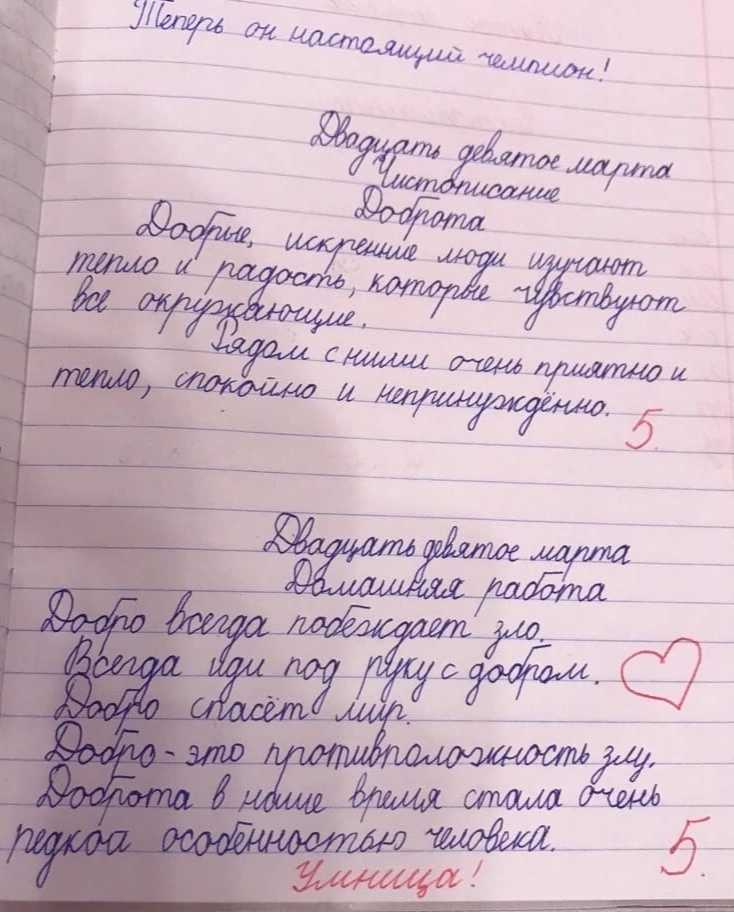 Теперь он настоящий чемпион!
Двадцать девятое марта
Чистописание
Доброта
Добрые, искренние люди изучают
тепло и радость, которые чувствуют
все окружающие.
Рядом с ними очень приятно и
тепло, спокойно и непринуждённо.
5.
Двадцать девятое марта
Домашняя работа
Добро всегда побеждает зло.
Всегда иди под руку с добром.
Добро спасёт мир.
Добро - это противположность злу.
Доброта в наше время стала очень
редкой особенностью человека.
5.
Умница!